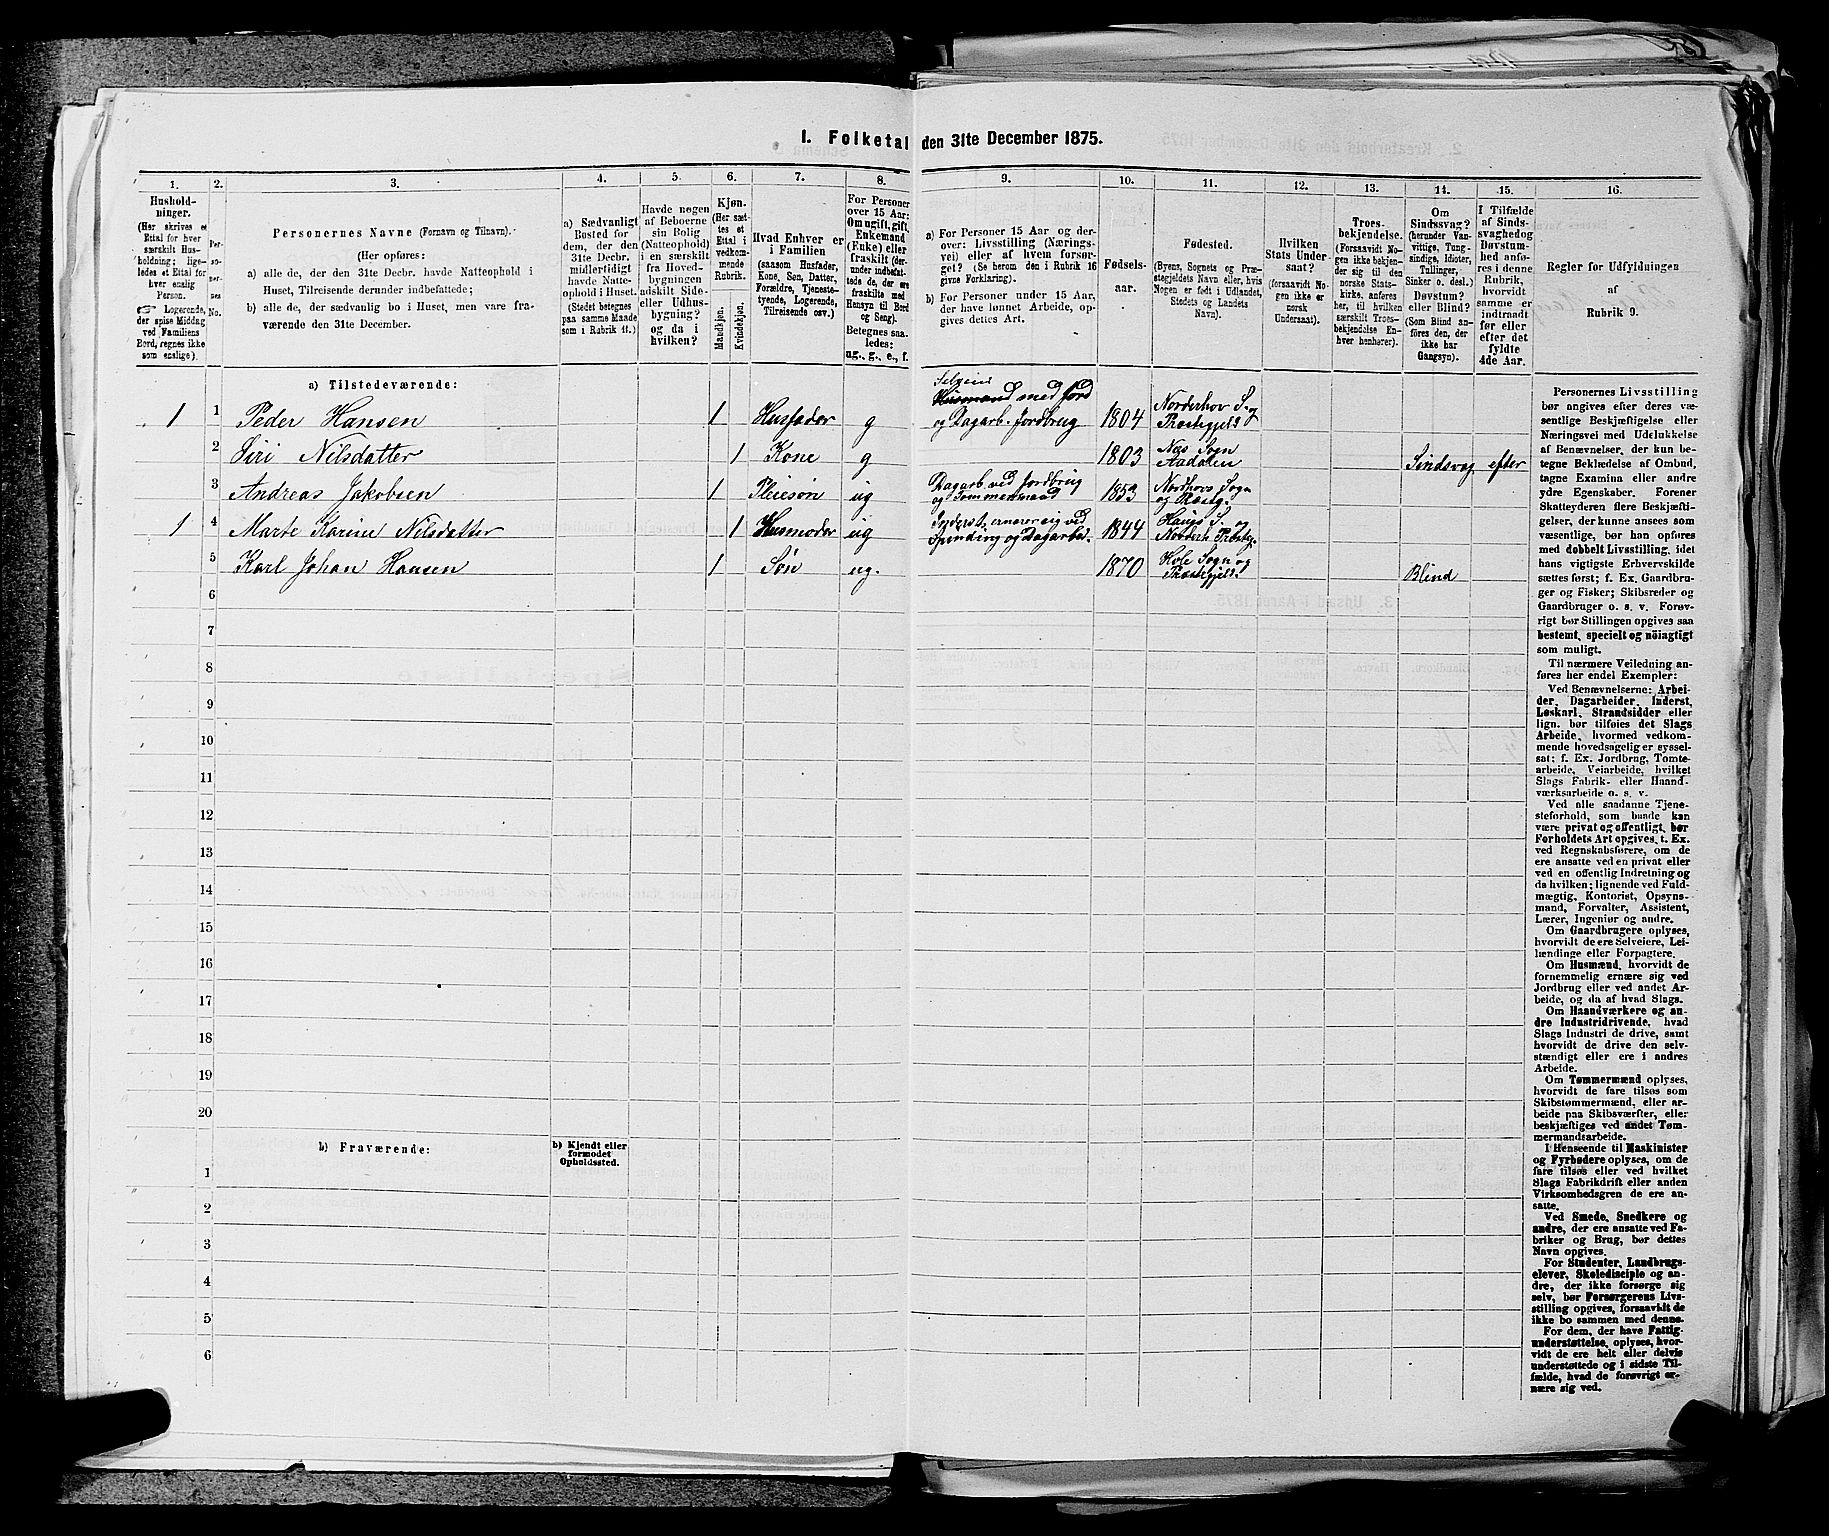 1. Folketal den 31te December 1875.
1. 2. 3. 4. 5. 6. 7. 8. 9. 10. 11. 12. 13. 14. 15. 16.
Hushold-
ninger.
(Her skrives et
Ettal for hver
særskilt Hus-
holdning; lige-
ledes et Ettal for
hver enslig
Person.
Logerende,
der spise Middag
ved Familiens
Bord, regnes ikke
som enslige).
Per-
so-
ner-
nes
No.
Personernes Navne (Fornavn og Tilnavn).
(Her opføres:
a) alle de, der den 31te Decbr. havde Natteophold i
Huset, Tilreisende derunder indbefattede;
b) alle de, der sædvanlig bo i Huset, men vare fra-
værende den 31te December.
a) Sædvanligt
Bosted for
dem, der den
31te Decbr.
midlertidigt
havde Natte-
ophold i Huset.
(Stedet betegnes
paa samme Maade
som i Rubrik 11.)
Havde nogen
af Beboerne
sin Bolig
(Natteophold)
i en særskilt
fra Hoved-
bygningen
adskilt Side-
eller Udhus-
bygning?
og da i
hvilken?
Kjøn.
(Her sæt-
tes et
Ettal i
vedkom-
mende
Rubrik.
Mandkjøn.
Kvindekjøn.
Hvad Enhver er
i Familien
(saasom Husfader,
Kone, Søn, Datter,
Forældre, Tjeneste-
tyende, Logerende,
Tilreisende osv.)
For Personer
over 15 Aar:
Om ugift, gift,
Enkemand
(Enke) eller
fraskilt (der-
under indbefat-
tede de, der ere
fraskilte med
Hensyn til Bord
og Seng).
Betegnes saa-
ledes:
ug., g., e., f.
a) For Personer 15 Aar og der-
over: Livsstilling (Nærings-
vei) eller af hvem forsør-
get? (Se herom den i Rubrik 16
givne Forklaring).
b) For Personer under 15 Aar,
der have lønnet Arbeide, op-
gives dettes Art.
Fødsels-
aar.
Fødested.
(Byens, Sognets og Præ-
stegjeldets Navn eller, hvis
Nogen er født i Udlandet,
Stedets og Landets
Navn).
Hvilken
Stats Under-
saat?
(forsaavidt No-
gen ikke er
norsk
Undersaat).
Troes-
bekjendelse.
(Forsaavidt No-
gen ikke bekjen-
der sig til den
norske Stats-
kirke, anføres
her, til hvilken
særskilt Troes-
bekjendelse En-
hver henhører).
Om
Sindssvag?
(herunder Van-
vittige, Tung-
sindige, Idioter,
Tullinger,
Sinker o. desl.)
Døvstum?
eller Blind?
(Som Blind an-
føres den, der
ikke har
Gangsyn).
I Tilfælde
af Sinds-
svaghed og
Døvstum-
hed anfø-
res i denne
Rubrik,
hvorvidt
samme er
indtraadt
før eller
efter det
fyldte
4de Aar.
Regler for Udfyldningen
af
Rubrik 9.
a) Tilstedeværende:
Selveier
1 1 Peder Hansen 1 Husfader g Husmand med Jord og Dagarb. Jordbrug 1804 Norderhov S. og Præstegjeld
2 Siri Nilsdatter 1 Kone g 1803 Næs Sogn Aadalen Sindsvag efter
3 Andreas Jakobsen 1 Pleiesøn ug Dagarb. ved Jordbrug og Tømmermand 1853 Nordhovs Sogn og Præstg.
1 4 Marte Karine Nilsdatter 1 Husmoder ug Inderst, ernærer sig ved Spinding og Dagarbd. 1844 Haugs S. Norderh. Præstg.
5 Karl Johan Hansen 1 Søn ug. 1870 Hole Sogn og Præstegjeld Blind
6
7
8
9
10
11
12
13
14
15
16
17
18
19
20
b) Fraværende:
b) Kjendt eller
formodet
Opholdssted.
1
2
3
4
5
6
Personernes Livsstilling
bør angives efter deres væ-
sentlige Beskjæftigelse eller
Næringsvei med Udelukkelse
af Benævnelser, der kun be-
tegne Beklædelse af Ombud,
tagne Examina eller andre
ydre Egenskaber. Forener
Skatteyderen flere Beskjæfti-
gelser, der kunne ansees som
væsentlige, bør han opføres
med dobbelt Livsstilling, idet
hans vigtigste Erhvervskilde
sættes først; f. Ex. Gaardbru-
ger og Fisker; Skibsreder og
Gaardbruger o. s. v. Forøv-
rigt bør Stillingen opgives saa
bestemt, specielt og nøiagtigt
som muligt.
Til nærmere Veiledning an-
føres her endel Exempler:
Ved Benævnelserne: Arbei-
der, Dagarbeider, Inderst,
Løskarl, Strandsidder eller
lign. bør tilføies det Slags
Arbeide, hvormed vedkom-
mende hovedsagelig er syssel-
sat; f. Ex. Jordbrug, Tomte-
arbeide, Veiarbeide, hvilket
Slags Fabrik- eller Haand-
værksarbeide o. s. v.
Ved alle saadanne Tjene-
steforhold, som baade kan
være privat og offentligt, bør
Forholdets Art opgives, t. Ex.
ved Regnskabsførere, om de
ere ansatte ved en privat eller
ved en offentlig Indretning og
da hvilken; lignende ved Fuld-
mægtig, Kontorist, Opsyns-
mand, Forvalter, Assistent,
Lærer, Ingeniør og andre.
Om Gaardbrugere oplyses,
hvorvidt de ere Selveiere, Lei-
lændinge eller Forpagtere.
Om Husmænd, hvorvidt de
fornemmelig ernære sig ved
Jordbrug eller ved andet Ar-
beide, og da af hvad Slags.
Om Haandværkere og an-
dre Industridrivende, hvad
Slags Industri de drive, samt
hvorvidt de drive den selv-
stændigt eller ere i andres
Arbeide.
Om Tømmermænd oplyses,
hvorvidt de fare tilsøs som
Skibstømmermænd, eller ar-
beide paa Skibsværfter, eller
beskjæftiges ved andet Tøm-
mermandsarbeide.
I Henseende til Maskinister
og Fyrbødere oplyses, om de
fare tilsøs eller ved hvilket
Slags Fabrikdrift eller anden
Virksomhedsgren de ere an-
satte.
Ved Smede, Snedkere og
andre, der ere ansatte ved Fa-
briker og Brug, bør dettes
Navn opgives.
For Studenter, Landbrugs-
elever, Skoledisciple og an-
dre, der ikke forsørge sig
selv, bør Forsørgerens Livs-
stilling opgives, forsaavidt de
ikke bo sammen med denne.
For dem, der have Fattig-
understøttelse, oplyses, hvor-
vidt de ere helt eller delvis
understøttede og i sidste Til-
fælde, hvad de forøvrigt er-
nære sig ved.